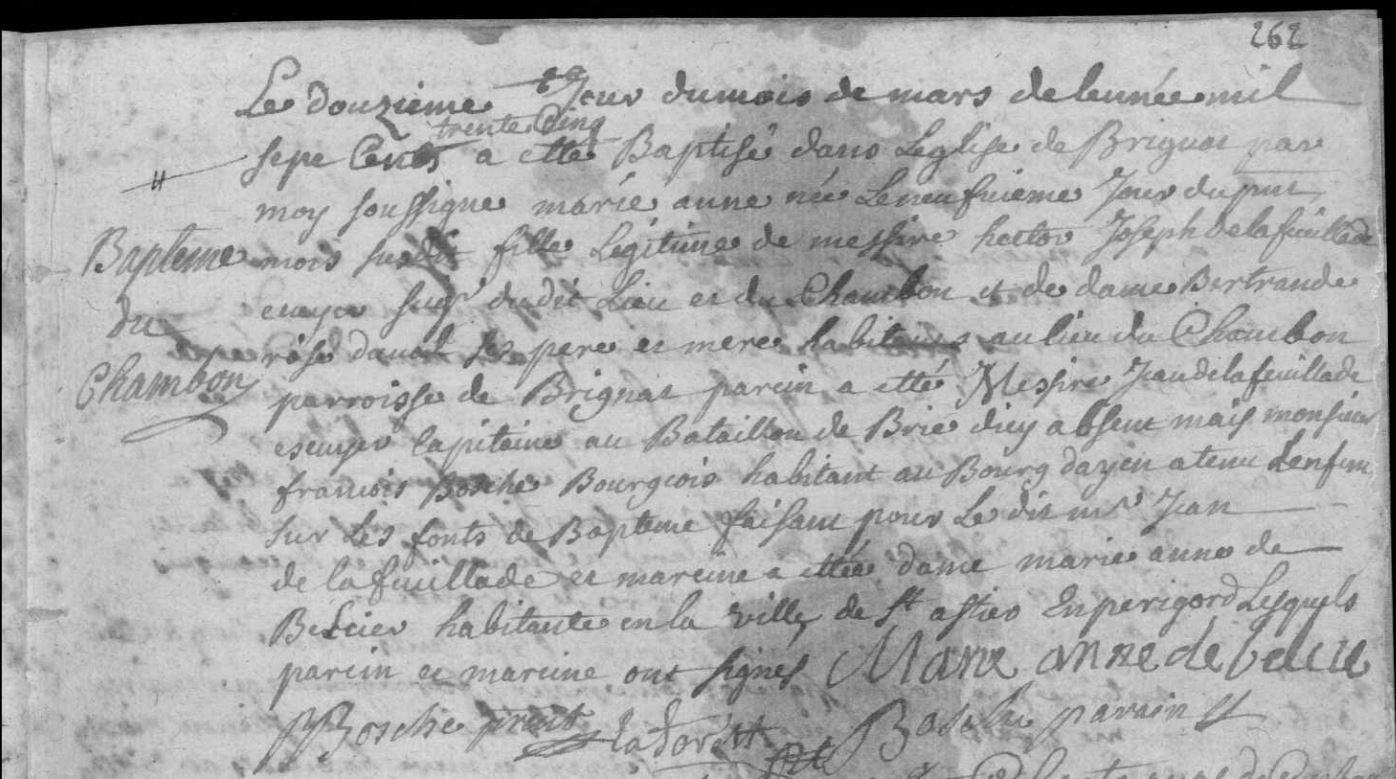 262
Le douzieme Jour du mois de mars de lennée mil
trente Cinq
sept Cents a etté Baptisé dans Leglise de Brignac par
moy soussigne marie anne née Le neufvieme Jour du pnt
Bapteme
du
Chambon
mois susdit fille Legitime de messire hector Joseph de la feuillade
ecuyer seigr dudit Lieu et du Chambon et de dame Bertrande
rose ses pere et mere habitants au lieu du Chambon
parroisse de Brignac parein a etté Messire Jean de la feuillade
escuyer Capitaine au Bataillon de Brie absent mais monsieur
francois Bosche Bourgeois habitant au Bourg dayen a tenu Lenfent
sur Les fonts de Bapteme faisant pour Le dit mr Jean
de la feuillade et mareine a ettée dame marie anne de
Beleier habitante en la ville de St astier En perigord Lesquels
parein et mareine ont signés Marie anne de
Bosche Bosche parain